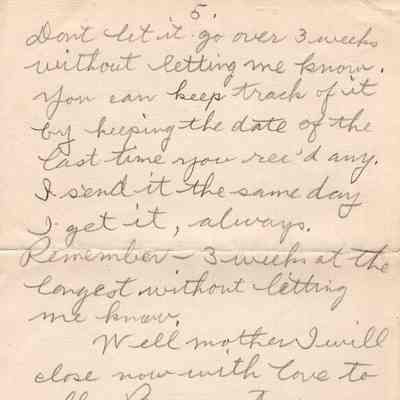 5.
Dont let it go over 3 weeks
without letting me know.
You can keep track of it
by keeping the date of the
last time you rec'd any.
I send it the same day
I get it, always.
Remember - 3 weeks at the
longest without letting
me know.
Well mother I will
close now with love to